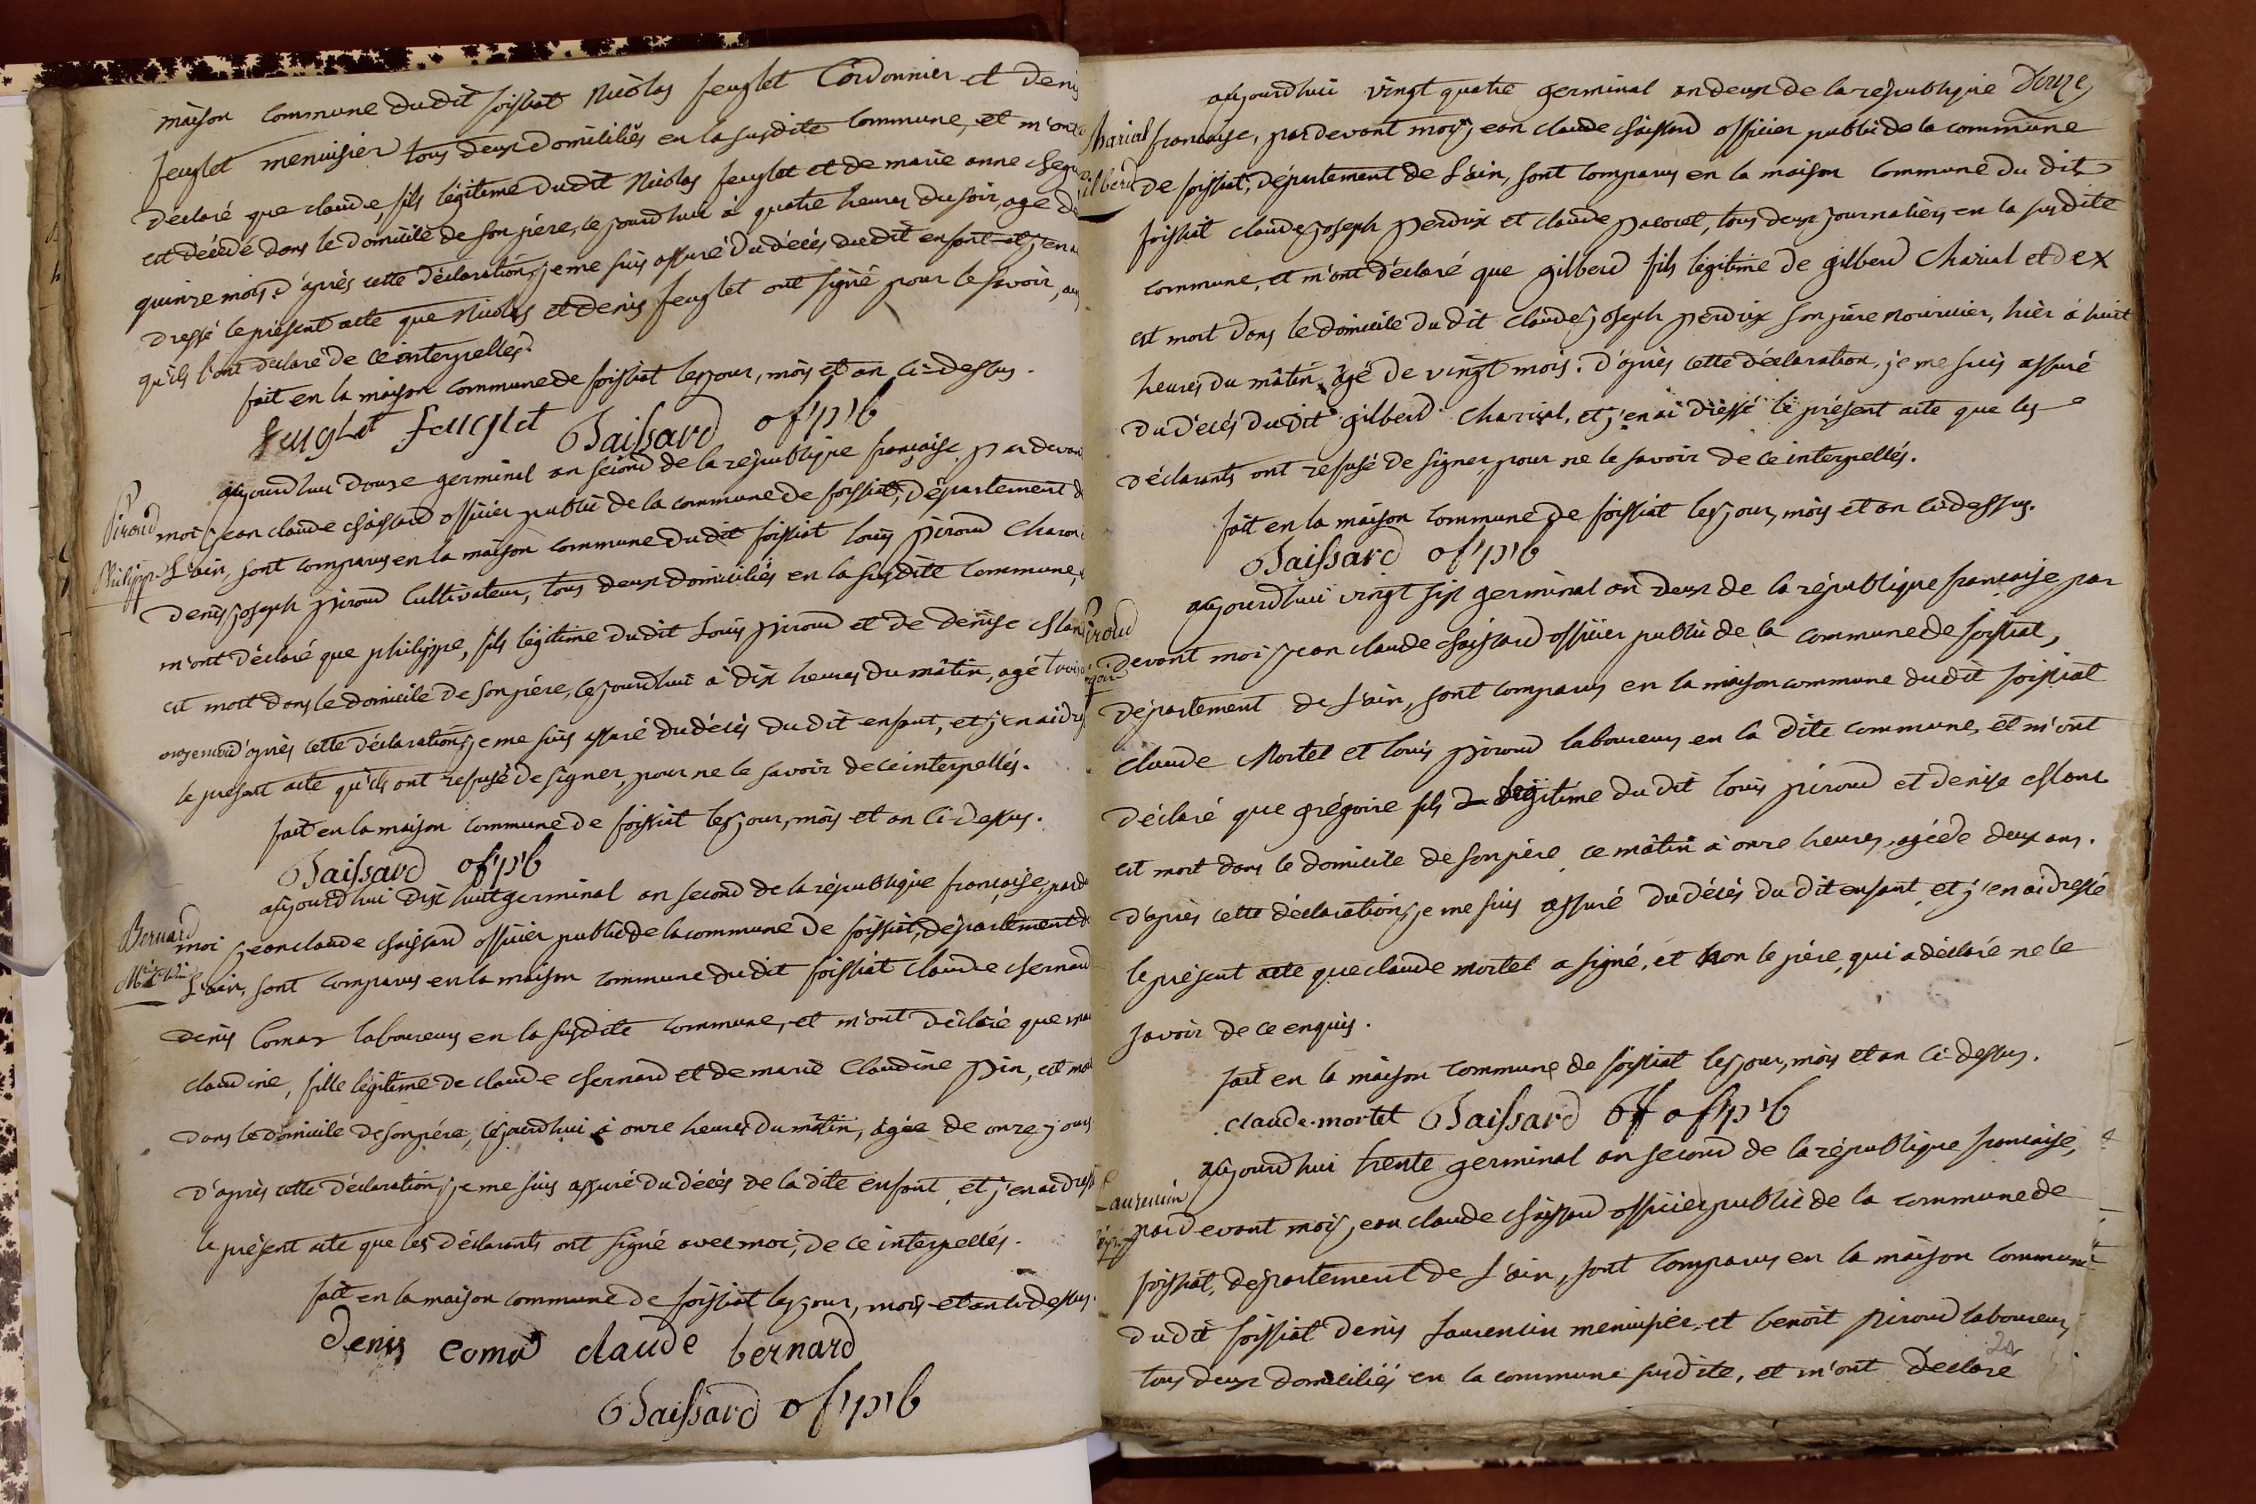 maison commune dudit foissiat Nicolas feuglet Cordonnier et denis
feuglet menuisier tous deux domiciliés en la susdite commune, et m'ont
declaré que claude, fils légitime dudit Nicolas feuglet et de marie anne
est décédé dans le domicile de son père, ce jourd'hui à quatre heures du soir, agé de
quinze mois. d'après cette déclaration, je me suis assuré du décès dudit enfant et j'en ai
dressé le présent acte que Nicolas et denis feuglet ont signé pour le savoir,
qu'ils l'ont déclaré de ce interpellés.
fait en la maison commune de foissiat les jour, mois et an ci-dessus.
feuglet feuglet Baissard of. pb
Piroud
Philippe
aujourd'hui douze germinal an second de la république française pardevant
moi jean claude Baissard officier public de la commune de foissiat, département de
L'ain, sont comparus en la maison commune du dit foissiat louis piroud Charon
denis joseph piroud Cultivateur, tous deux domiciliés en la susdite commune,
m'ont déclaré que philippe, fils légitime dudit Louis piroud et de denise
est mort dans le domicile de son père, ce jourd'hui à dix heures du mâtin, agé trois
d'après cette déclaration, je me suis assuré du décès du dit enfant, et j'en ai
le présent acte qu'ils ont refusé de signer, pour ne le savoir de ce interpellés.
fait en la maison commune de foissiat les jour, mois et an ci-dessus.
Baissard of. pb
Bernard
Mie Cladine
aujourd'hui dix huit germinal an second de la république française, parde
moi jean claude Baissard officier public de la commune de foissiat, département de
L'ain, sont comparus en la maison commune du dit foissiat claude Bernard
denis Comas laboureurs en la susdite commune, et m'ont déclaré que
claudine, fille légitime de claude Bernard et de marie Claudine Pin, est
dans le domicile de son père, ce jourd'hui à onze heures du mâtin, agée de onze jours
D'après cette déclaration, je me suis assuré du décès de la dite enfant, et j'en ai dressé
le présent acte que les déclarants ont signé avec moi, de ce interpellés.
fait en la maison commune de foissiat les jour, mois et an ci-dessus.
denis coma claude bernard
Baissard of. pb
Douze
aujourd'hui vingt quatre germinal an deux de la république
Charial
Gilberd
française, pardevant moi jean claude Baissard officier public de la commune
De foissiat, département de L'ain, sont comparus en la maison commune du dit
foissiat claude joseph perdrix et claude pacout, tous deux journaliers en la susdite
commune, et m'ont déclaré que gilberd fils légitime de gilberd Charial et de x
est mort dans le domicile du dit claude joseph perdrix son père nouricier, hièr à huit
heures du mâtin, âgé de vingt mois. d'après cette déclaration, je me suis assuré
du décès du dit gilberd Charial, et j'en ai dressé le présent acte que les
déclarants ont refusé de signer, pour ne le savoir de ce interpellés.
fait en la maison commune de foissiat les jour, mois et an ci-dessus.
Baissard of. pb
aujourd'hui vingt six germinal an deux de la république française par
Piroud
devant moi jean claude Baissard officier public de la commune de foissiat,
Département de L'ain, sont comparus en la maison commune dudit foissiat
claude Mortel et louis piroud laboureurs en la dite commune, et m'ont
déclaré que grégoire fils légitime du dit louis piroud et denise
est mort dans le domicile de son père ce mâtin à onze heures, agé de deux ans.
d'après cette déclaration, je me suis assuré du décès du dit enfant, et j'en ai dressé
le présent acte que claude mortel a signé, et non le père, qui a déclaré ne le
savoir de ce enquis.
fait en la maison commune de foissiat les jour, mois et an ci-dessus.
claude mortel Baissard off of. pb
aujourd'hui trente germinal an second de la république française,
Laurencin
pardevant moi jean claude Baissard officier public de la commune de
foissiat, département de L'ain, sont comparus en la maison commune
dudit foissiat denis Laurencin menuisier, et benoit piroud laboureur,
tous deux domiciliés en la commune susdite, et m'ont déclaré